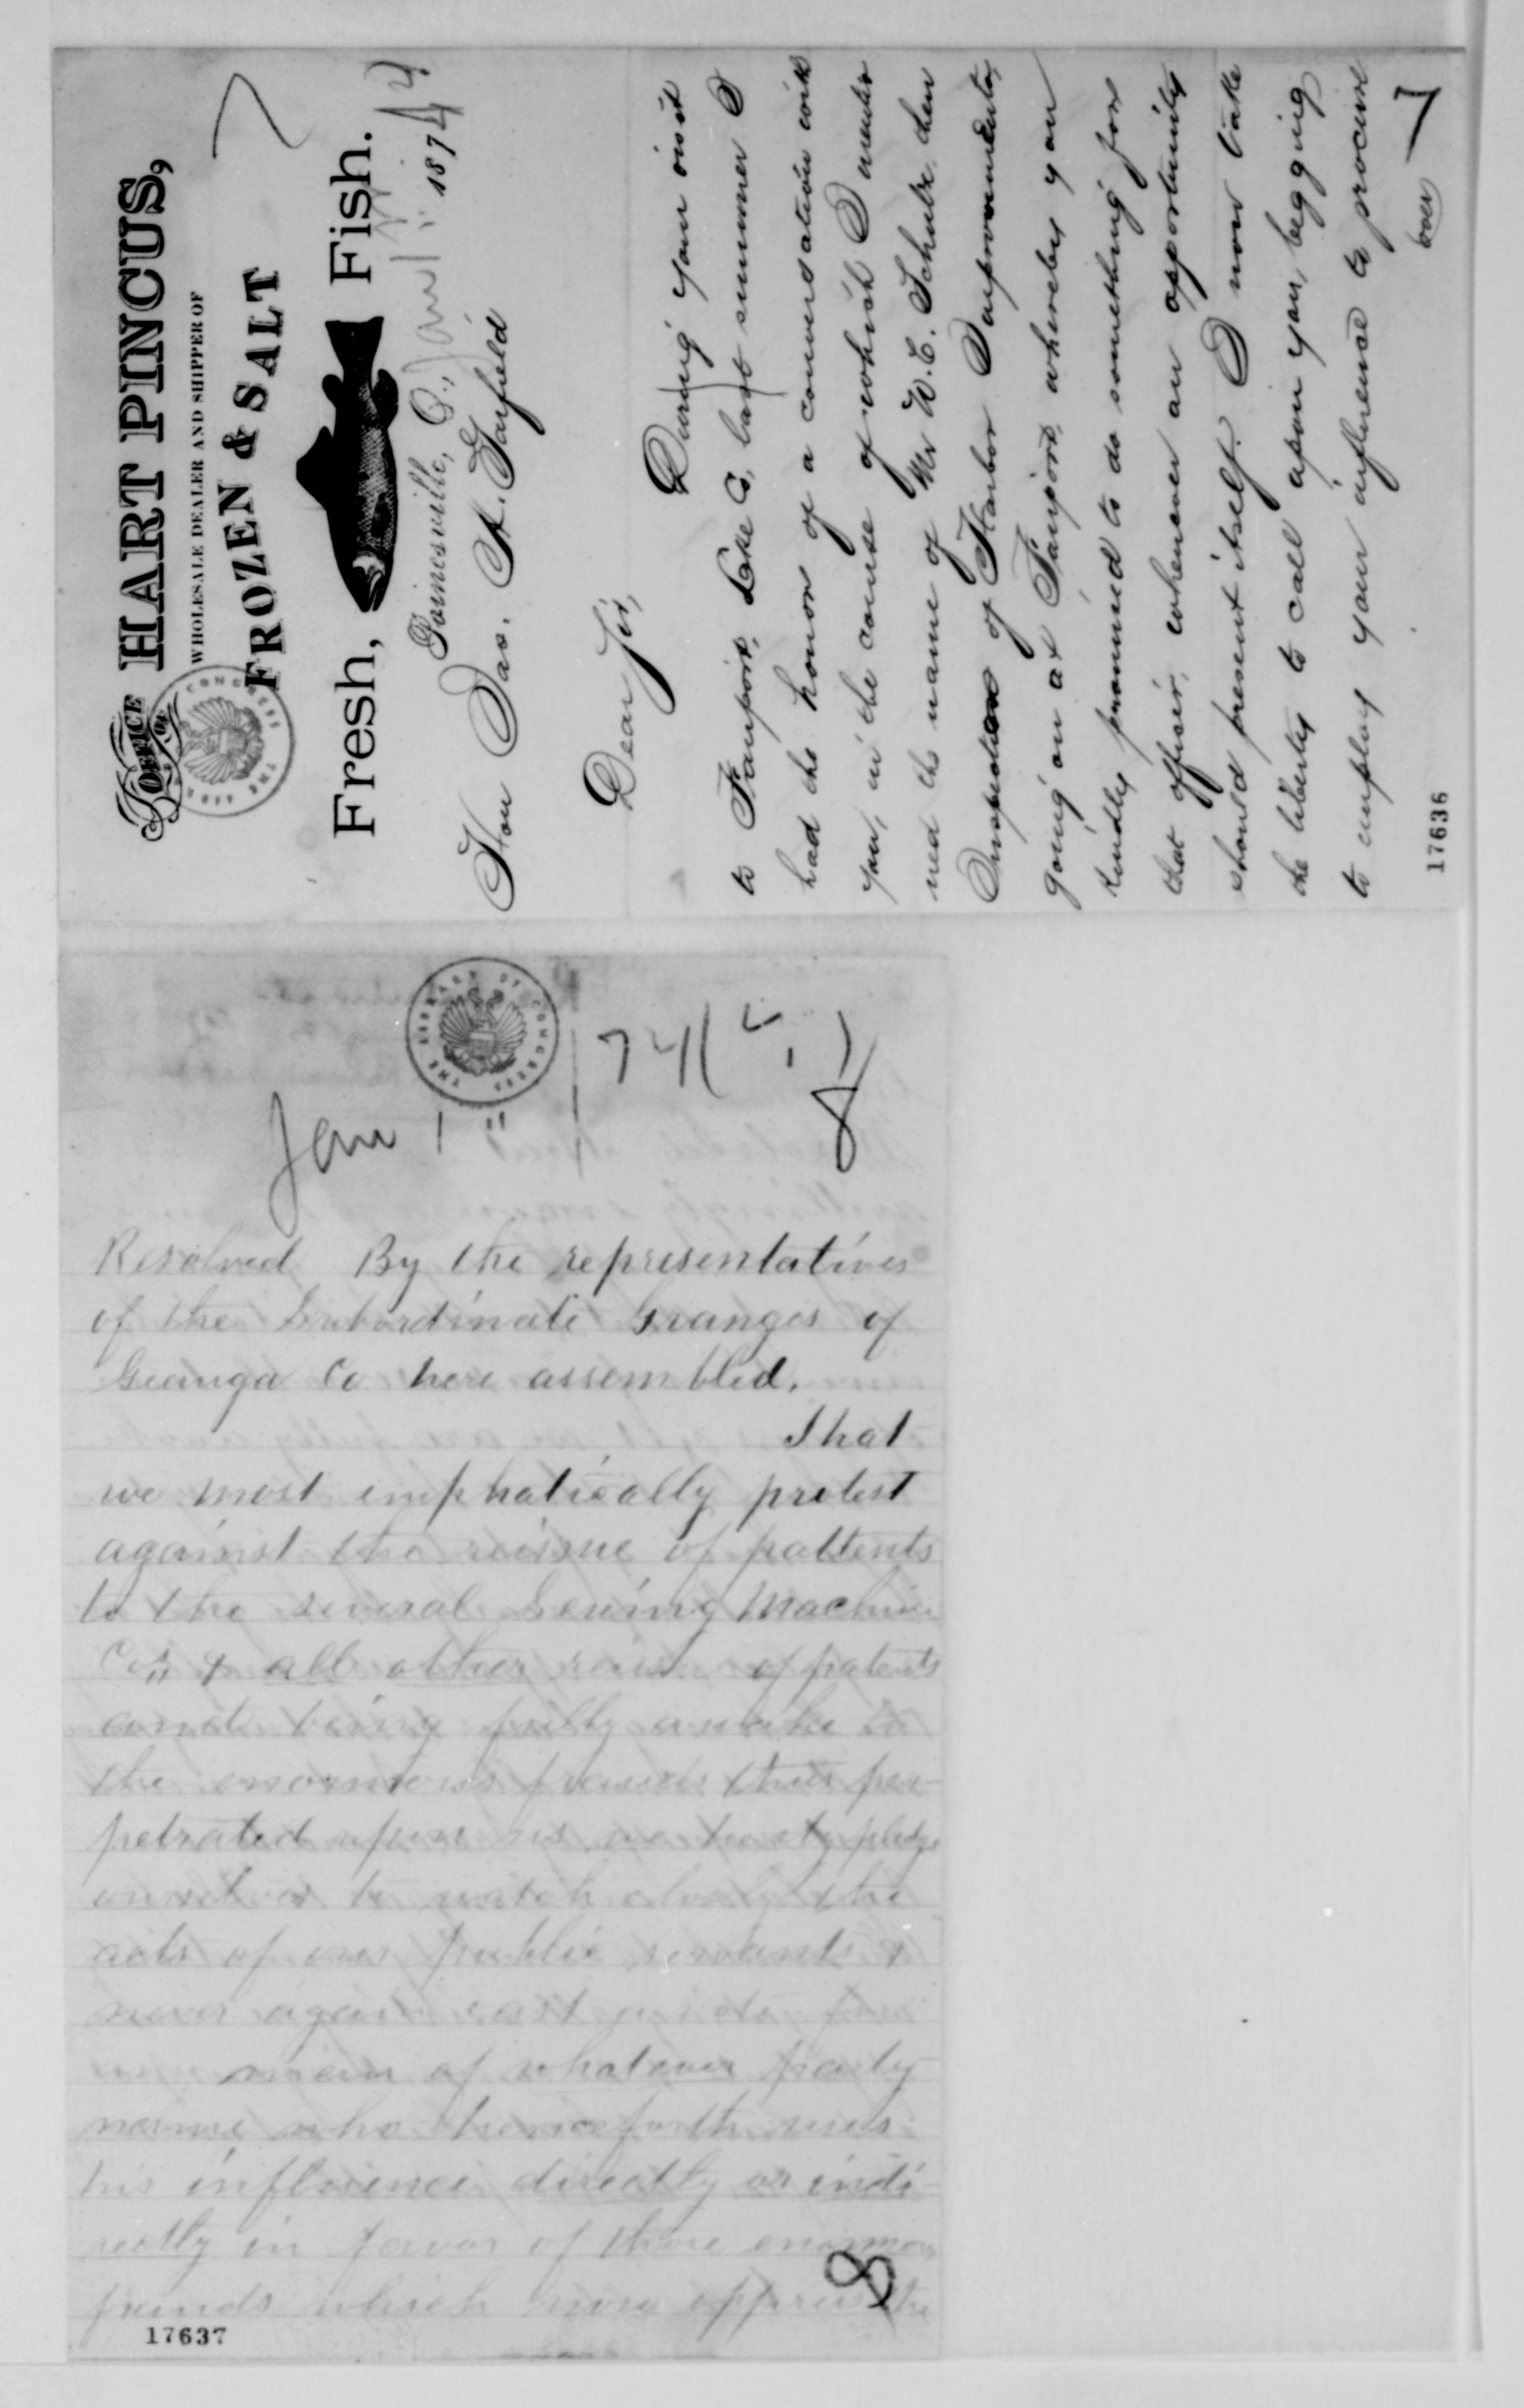 OFFICE OF
HART PINCUS,
WHOLESALE DEALER AND SHIPPER OF
FROZEN & SALT
Fresh, Fish.
Painesville, O., Jan 1" 1874
7
Hon Jas. A. Garfield
Dear Sir,
During your visit
to Fairport, Lake Co, last summer I
had the honor of a conversation with
you, in the course of which I mentio
ned the name of Mr W. C. Schulze then
of Harbor Improvements,
going on at Fairport, whereby you
kindly promised to do something for
that officer, whenever an opportunity
should present itself. I now take
the liberty to call upon you, begging
to employ your influence to procure
over
7
17636
THE LIBRARY OF CONGRESS
Jan 1" 1874
8
Resolved By the representatives
of the Subordinate Granges of
Geauga Co here assembled.
That
we most emphatically protest
against the reissue of pattents
to the several Sewing Machine
Cos" & all other reissue of patents
and being fully awake to
the enormous frauds thus per-
petrated upon us we hereby pledge
ourselves to watch closely the
acts of our public servants &
never again cast a vote for
any man of whatever party
name who henceforth uses
his influence directly or indi-
rectly in favor of those enormous
frauds which now oppress the
8
17637